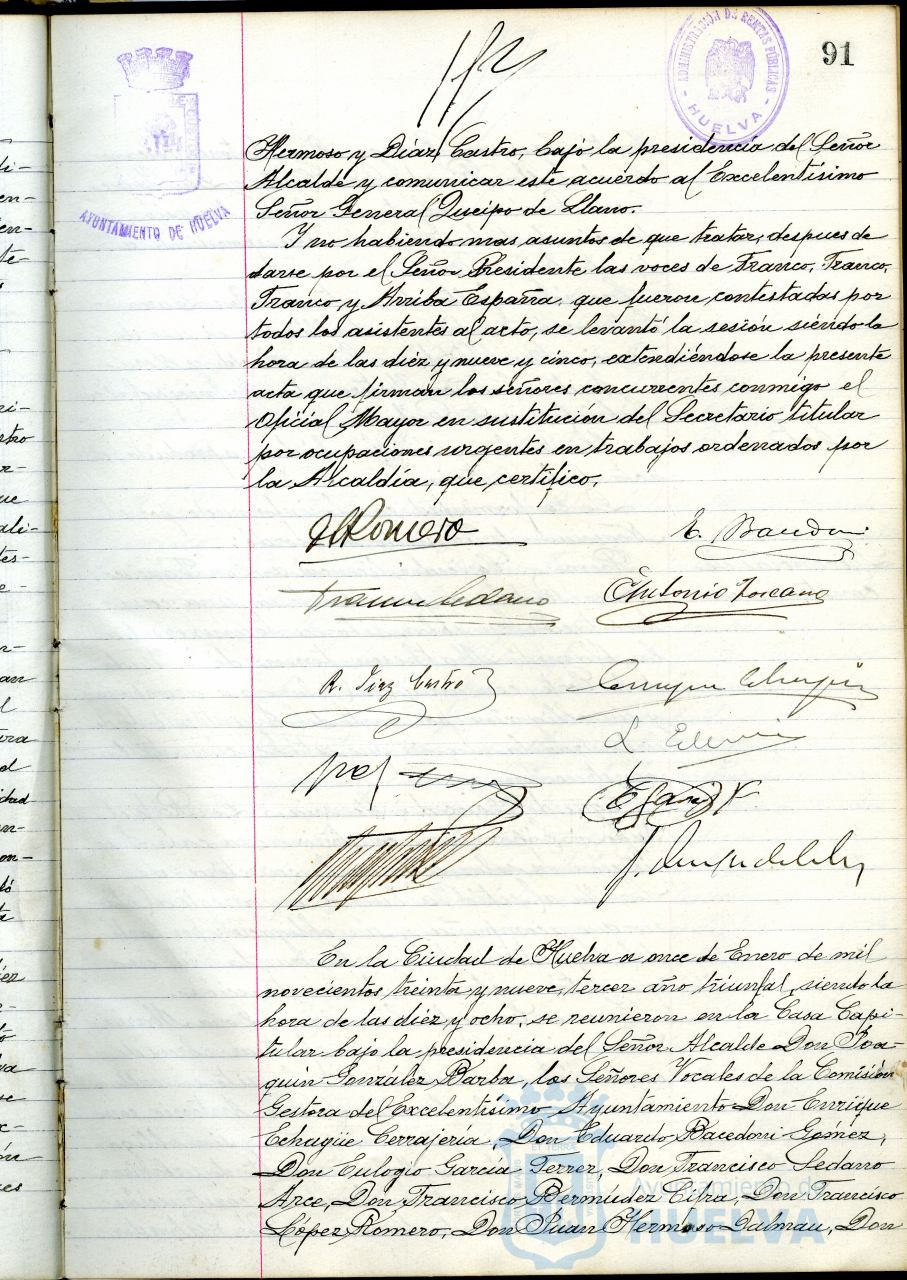 91
ADMINISTRACIÓN DE RENTAS PÚBLICAS
HUELVA
AYUNTAMIENTO DE HUELVA
Hermoso y Díaz Castro, bajo la presidencia del Señor
Alcalde y comunicar este acuerdo al Excelentísimo
Señor General Queipo de Llano.
Y no habiendo mas asuntos de que tratar, despues de
darse por el Señor Presidente las voces de Franco, Franco,
Franco y Arriba España, que fueron contestadas por
todos los asistentes al acto, se levantó la sesión siendo la
hora de las diéz y nueve y cinco, extendiéndose la presente
acta que firman los señores concurrentes conmigo el
Oficial Mayor en sustitución del Secretario titular
por ocupaciones urgentes en trabajos ordenados por
la Alcaldía, que certifico.
Romero
Antonio Toscano
R. Diaz Castro
En la Ciudad de Huelva a once de Enero de mil
novecientos treinta y nueve, tercer año triunfal, siendo la
hora de las diéz y ocho, se reunieron en la Casa Capi-
tular bajo la presidencia del Señor Alcalde Don Joa-
quin González Barba, los Señores Vocales de la Comisión
Gestora del Excelentísimo Ayuntamiento Don Enrique
Echagüe Cerrajería, Don Eduardo Bacedoni Gómez,
Don Eulogio García Ferrer, Don Francisco Sedano
Arce, Don Francisco Bermúdez Cifra, Don Francisco
López Romero, Don Juan Hermoso Dalmau, Don
Ayuntamiento de
HUELVA